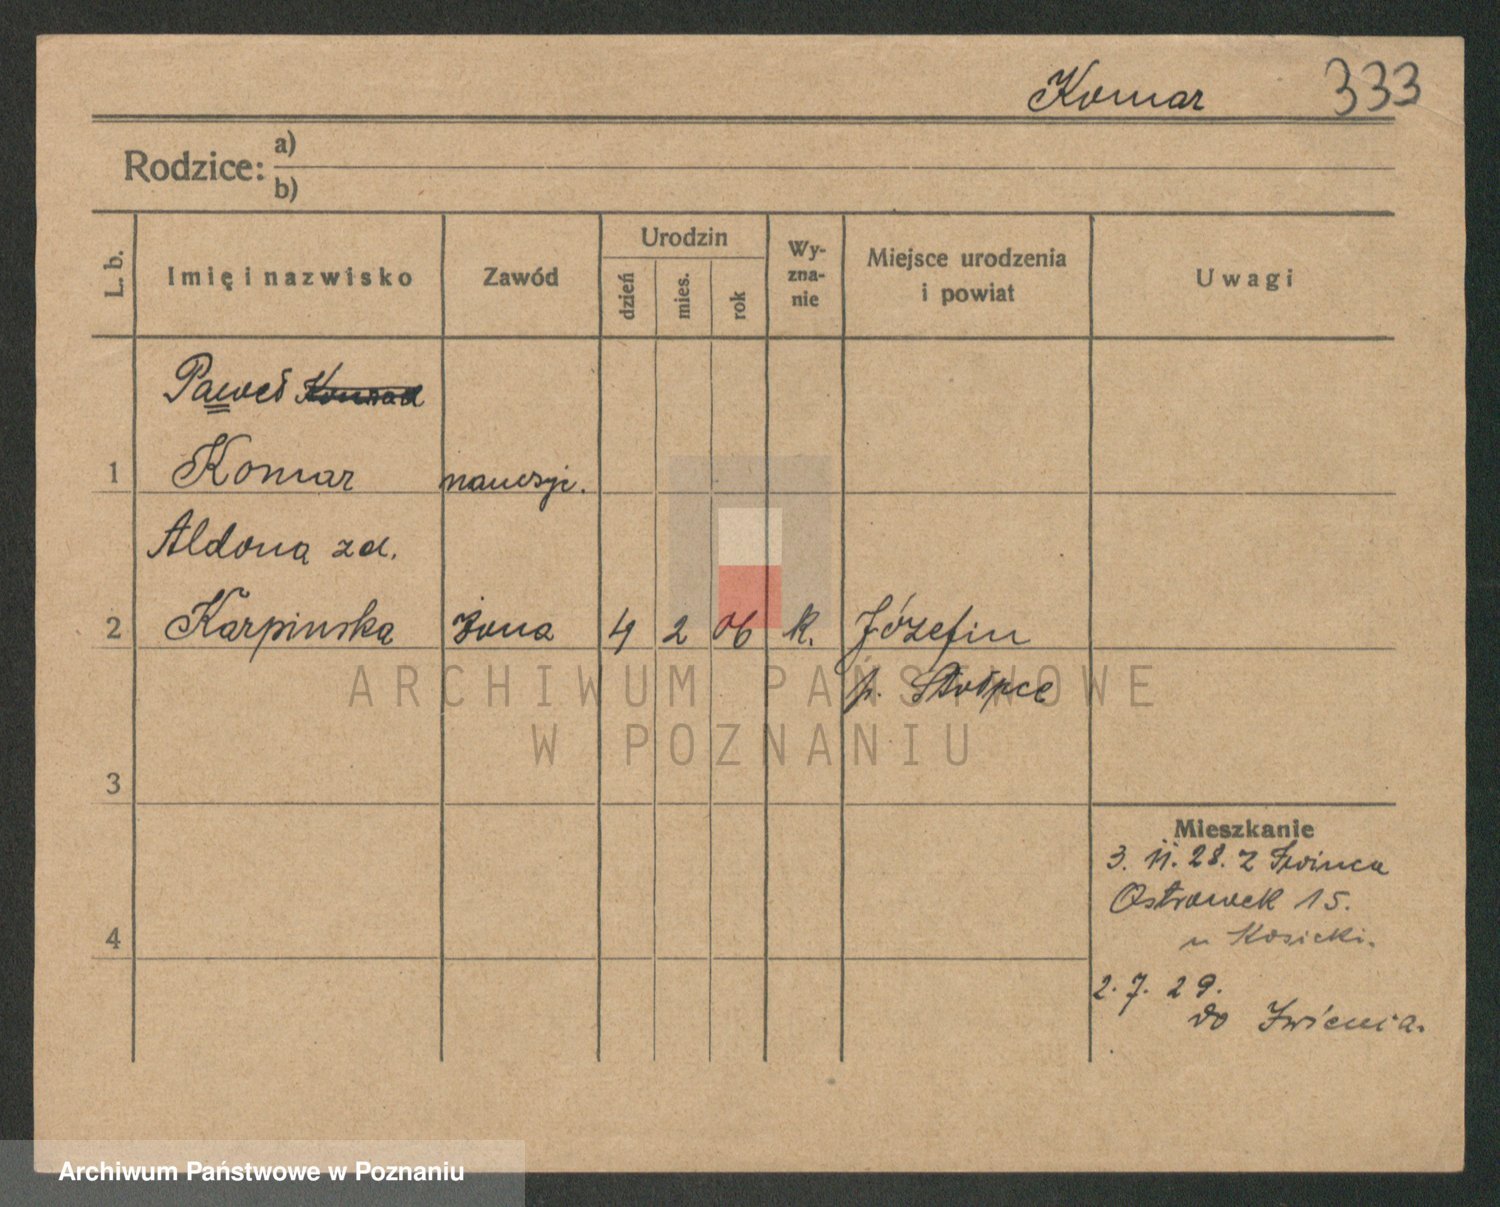 Komar 333
Rodzice: a)
b)
L. b.
Imię i nazwisko
Zawód
Urodzin
dzień
mies.
rok
Wy-
zna-
nie
Miejsce urodzenia
i powiat
Uwagi
Paweł Konrad
1 Komar nauczyc.
Aldona zd.
2 Karpinska żona 4 2 06 k. Józefin
p. Stołpce
ARCHIWUM PAŃSTWOWE
W POZNANIU
3
Mieszkanie
3. 11. 28. z
Ostrowek 15.
4
u Kosicki.
2. 7. 29.
do
Archiwum Państwowe w Poznaniu